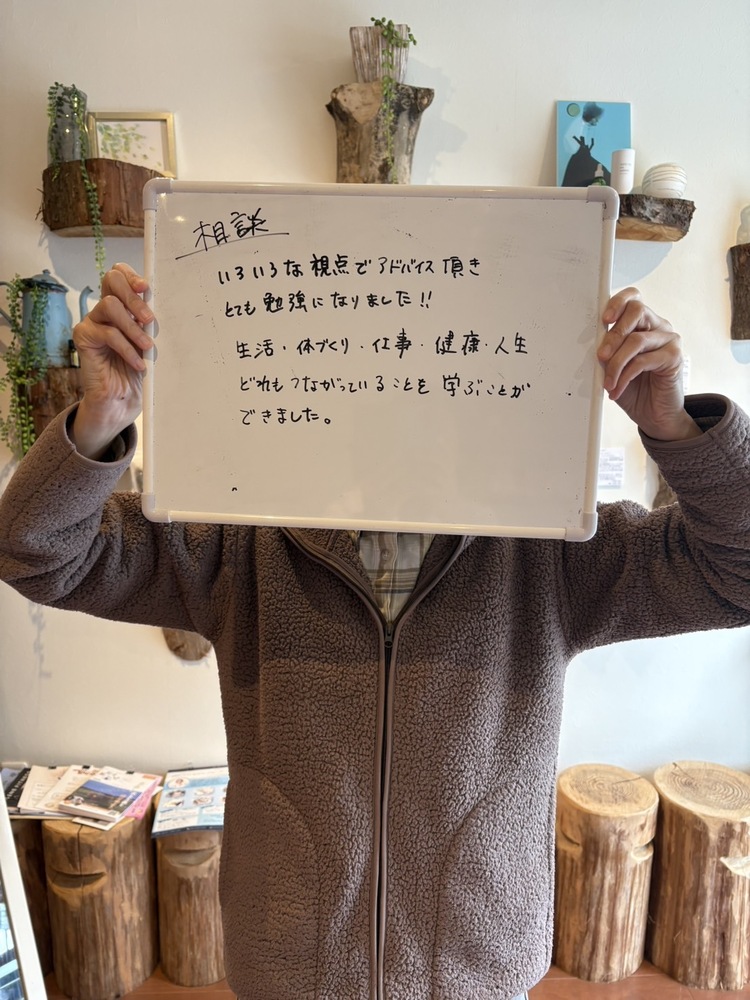 相談
いろいろな視点でアドバイス頂き
とても勉強になりました!!
生活・体づくり・仕事・健康・人生
どれもつながっていることを学ぶことが
できました。